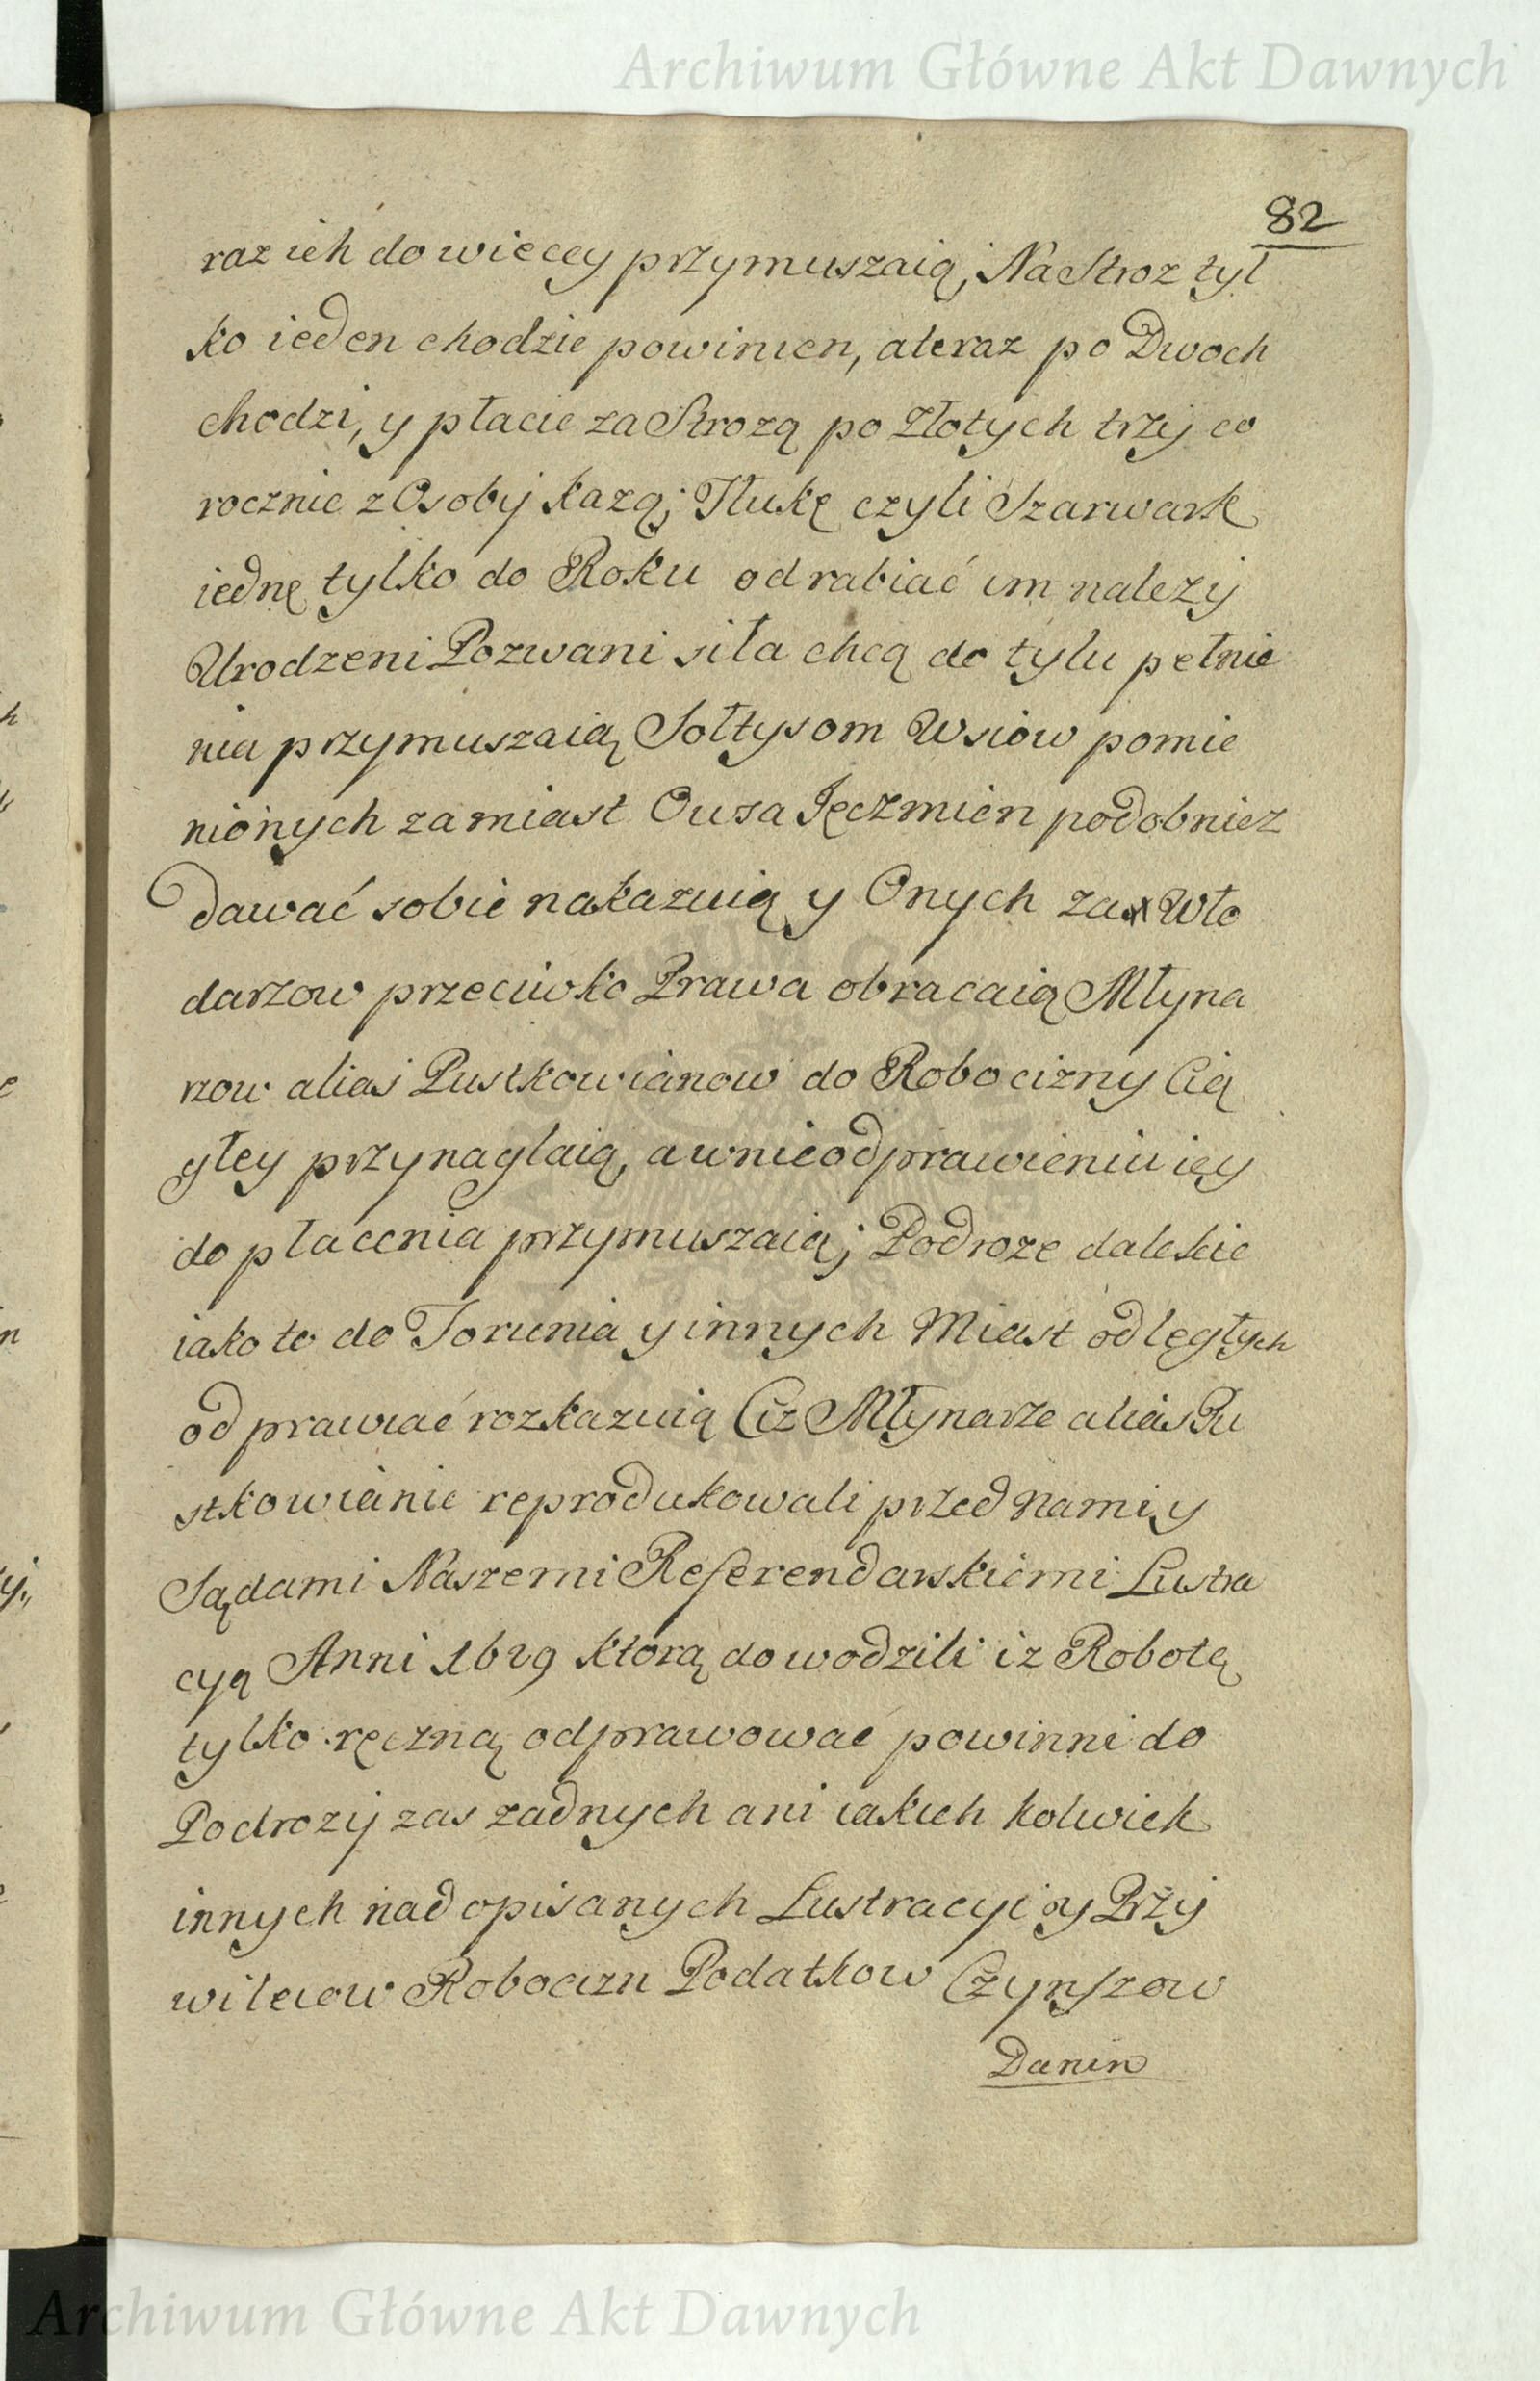 Archiwum Główne Akt Dawnych
82
raz ich do wiecey przymuszaią, Na Stroz tyl
ko ieden chodzie powinien, ateraz po Dwoch
chodzi, y płacie za Strozą po Złotych trzy co
rocznie z Osoby kazą; Tłukę czyli Szarwark
iednę tylko do Roku odrabiać im nalezy
Urodzeni Pozwani siła chcą do tylu pełnie
nia przymuszaią Sołtysom Wsiow pomie
nionych zamiast Owsa Jęczmien podobniez
dawać sobie nakazuią y Onych za Wło
darzow przeciwko Prawa obracaią Młyna
rzow alias Pustkowianow do Robocizny Cią
głey przynaglaią, a wnieodprawieniu iey
do płacenia przymuszaią; Podroze dalekie
iako to do Torunia y innych Miast odległych
odprawiać rozkazuią Ciz Młynarze alias Pu
stkowianie reprodukowali przed Nami y
Sądami Naszemi Referendarskiemi Lustra
cyą Anni 1629 ktorą dowodzili iz Robotę
tylko ręczną odprawować powinni do
Podrozy zas zadnych ani iakich kolwiek
innych nad opisanych Lustracyi y Przy
wileiow Robocizn Podatkow Czynszow
Danin
Archiwum Główne Akt Dawnych